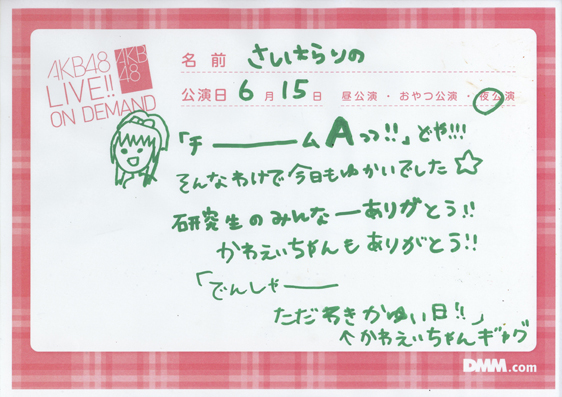 AKB48
LIVE!!
ON DEMAND
AKB
48
名前 さしはらりの
公演日 6月15日 昼公演・おやつ公演・夜公演
「チ━━━ムAっっ!!」どや!!!
そんなわけで今日もゆかいでした☆
研究生のみんなーありがとう!!
かわえいちゃんもありがとう!!
「でんしゃ━━
ただ わきがかゆい日!!」
↑かわえいちゃんギャグ
DMM.com